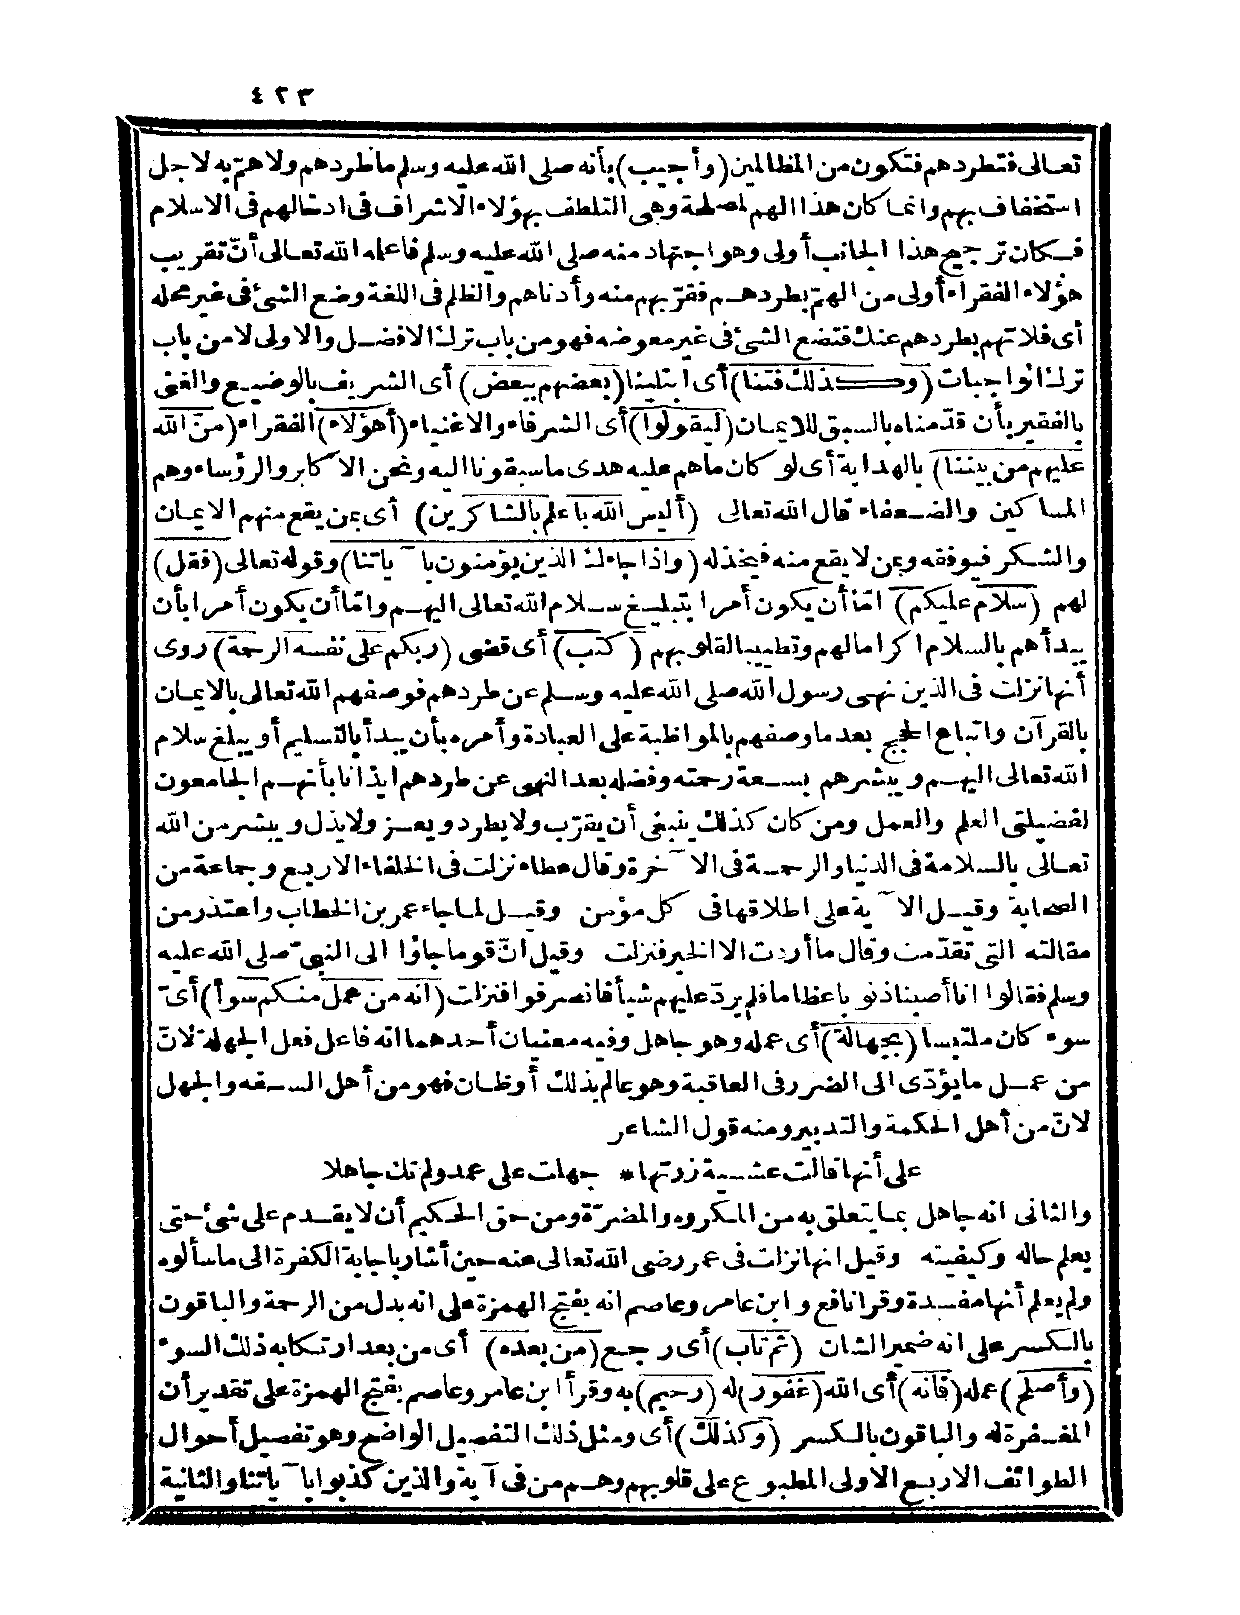 ٤٢٣
تعالى فتطردهم فتكون من الظالمين (وأجيب) بأنه صلى الله عليه وسلم ما طردهم ولا همّ به لاجل
استخفاف بهم وانما كان هذا الهم لمصلحة وهى التلطف بهؤلاء الاشراف فى ادخالهم فى الاسلام
فكان ترجيح هذا الجانب أولى وهو اجتهاد منه صلى الله عليه وسلم فاعلمه الله تعالى أنّ تقريب
هؤلاء الفقراء أولى من الهمّ بطردهم فقرّبهم منه وأدناهم والظلم فى اللغة وضع الشئ فى غير محله
أى فلا تهم بطردهم عنك فتضع الشئ فى غير موضعه فهو من باب ترك الافضل والاولى لا من باب
ترك الواجبات (وكذلك فتنا) أى ابتلينا (بعضهم ببعض) أى الشريف بالوضيع والغنى
بالفقير بأن قدّمناه بالسبق للايمان (ليقولوا) أى الشرفاء والاغنياء (أهؤلاء) الفقراء (منّ الله
عليهم من بيننا) بالهداية أى لو كان ماهم عليه هدى ما سبقونا اليه ونحن الاكابر والرؤساء وهم
المساكين والضعفاء قال الله تعالى (أليس الله باعلم بالشاكرين) أى بمن يقع منهم الايمان
والشكر فيوفقه وبمن لا يقع منه فيخذله (واذا جاءك الذين يؤمنون بآياتنا) وقوله تعالى (فقل)
لهم (سلام عليكم) امّا أن يكون أمرا بتبليغ سلام الله تعالى اليهم وامّا أن يكون أمرا بأن
يبدأهم بالسلام اكرامالهم وتطييبا لقلوبهم (كتب) أى قضى (ربكم على نفسه الرحمة) روى
أنها نزلت فى الذين نهى رسول الله صلى الله عليه وسلم عن طردهم فوصفهم الله تعالى بالايمان
بالقرآن واتباع الحجج بعد ما وصفهم بالمواظبة على العبادة وأمره بأن يبدأ بالتسليم أو يبلغ سلام
الله تعالى اليهم ويبشرهم بسعة رحمته وفضله بعد النهى عن طردهم ايذانا بأنهم الجامعون
لفضيلتى العلم والعمل ومن كان كذلك ينبغى أن يقرّب ولا يطرد ويعز ولا يذل ويبشر من الله
تعالى بالسلامة فى الدنيا والرحمة فى الآخرة وقال عطاء نزلت فى الخلفاء الاربع وجماعة من
الصحابة وقيل الآية على اطلاقها فى كل مؤمن وقيل لما جاء عمر بن الخطاب واعتذر من
مقالته التى تقدّمت وقال ما أردت الا الخير فنزلت وقيل انّ قوما جاؤا الى النبىّ صلى الله عليه
وسلم فقالوا انا أصبنا ذنوبا عظاما فلم يردّ عليهم شيأ فانصرفوا فنزلت (انه من عمل منكم سوأ) أىّ
سوء كان ملتبسا (بجهالة) أى عمله وهو جاهل وفيه معنيان أحدهما انه فاعل فعل الجهلة لانّ
من عمل ما يؤدّى الى الضرر فى العاقبة وهو عالم بذلك أوظان فهو من أهل السفه والجهل
لانّ من أهل الحكمة والتدبير ومنه قول الشاعر
على أنها قالت عشية زرتها * جهلت على عمد ولم تك جاهلا
والثانى انه جاهل بما يتعلق به من المكروه والمضرّة ومن حق الحكيم أن لا يقدم على شئ حتى
يعلم حاله وكيفيته وقيل انها نزلت فى عمر رضى الله تعالى عنه حين أشار باجابة الكفرة الى ما سألوه
ولم يعلم أنها مفسدة وقرا نافع وابن عامر وعاصم انه بفتح الهمزة على انه بدل من الرحمة والباقون
بالكسر على انه ضمير الشان (ثم تاب) أى رجع (من بعده) أى من بعد ارتكابه ذلك السوء
(وأصلح) عمله (فانه) أى الله (غفور) له (رحيم) به وقرأ ابن عامر وعاصم بفتح الهمزة على تقدير أن
المغفرة له والباقون بالكسر (وكذلك) أى ومثل ذلك التفصيل الواضح وهو تفصيل أحوال
الطوائف الاربع الاولى المطبوع على قلوبهم وهم من فى آية والذين كذبوا بآياتنا والثانية